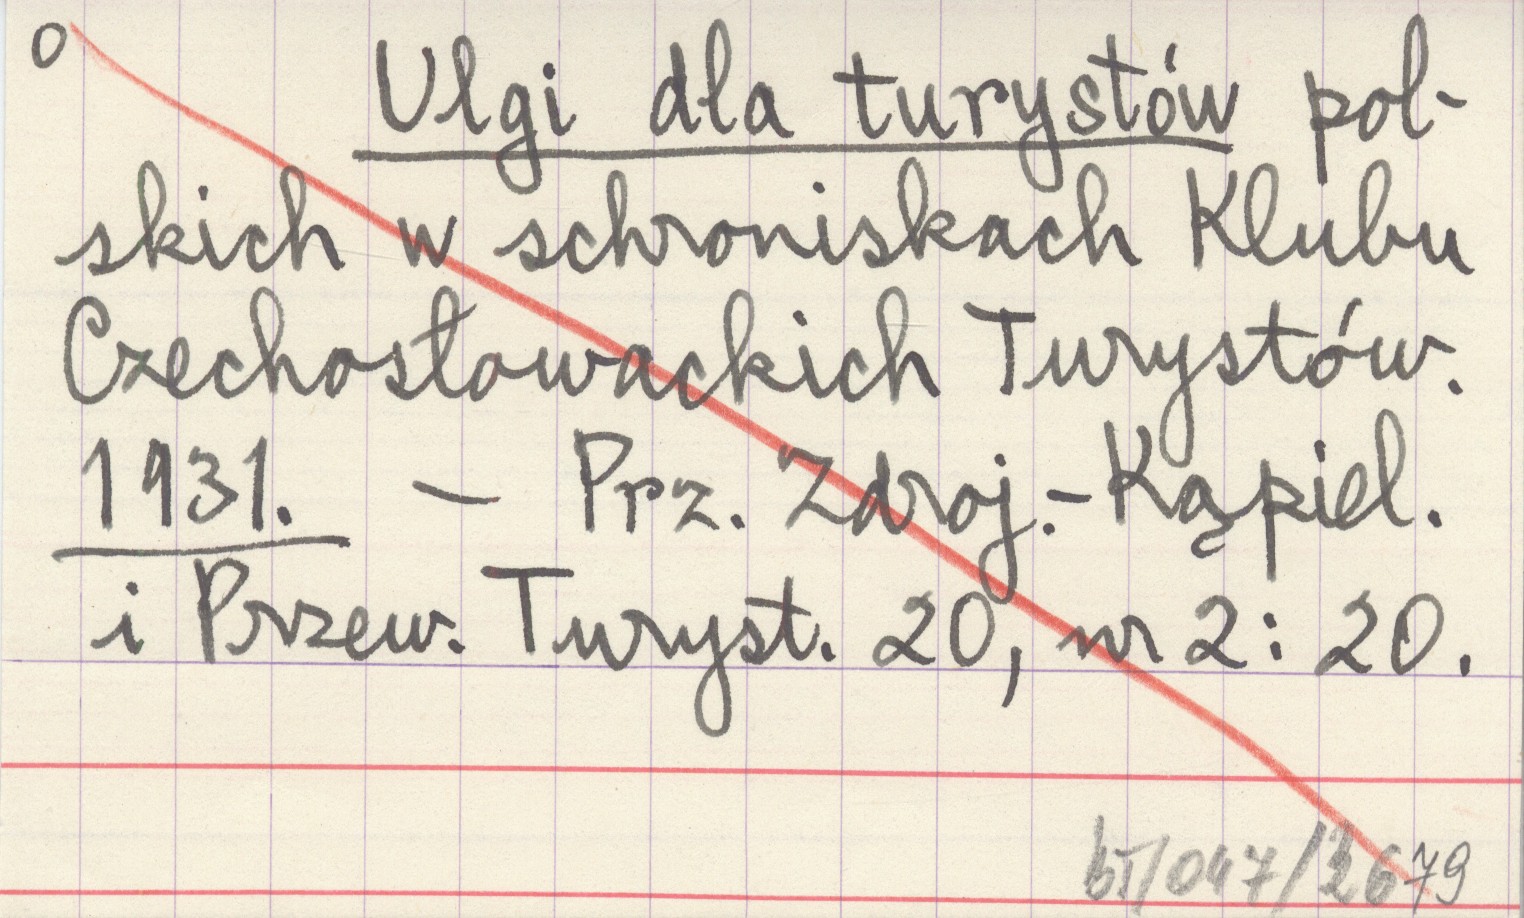 o
Ulgi dla turystów pol-
skich w schroniskach Klubu
Czechosłowackich Turystów.
1931. — Prz. Zdroj.-Kąpiel.
i Przew. Turyst. 20, nr 2: 20.
bT/047/2679